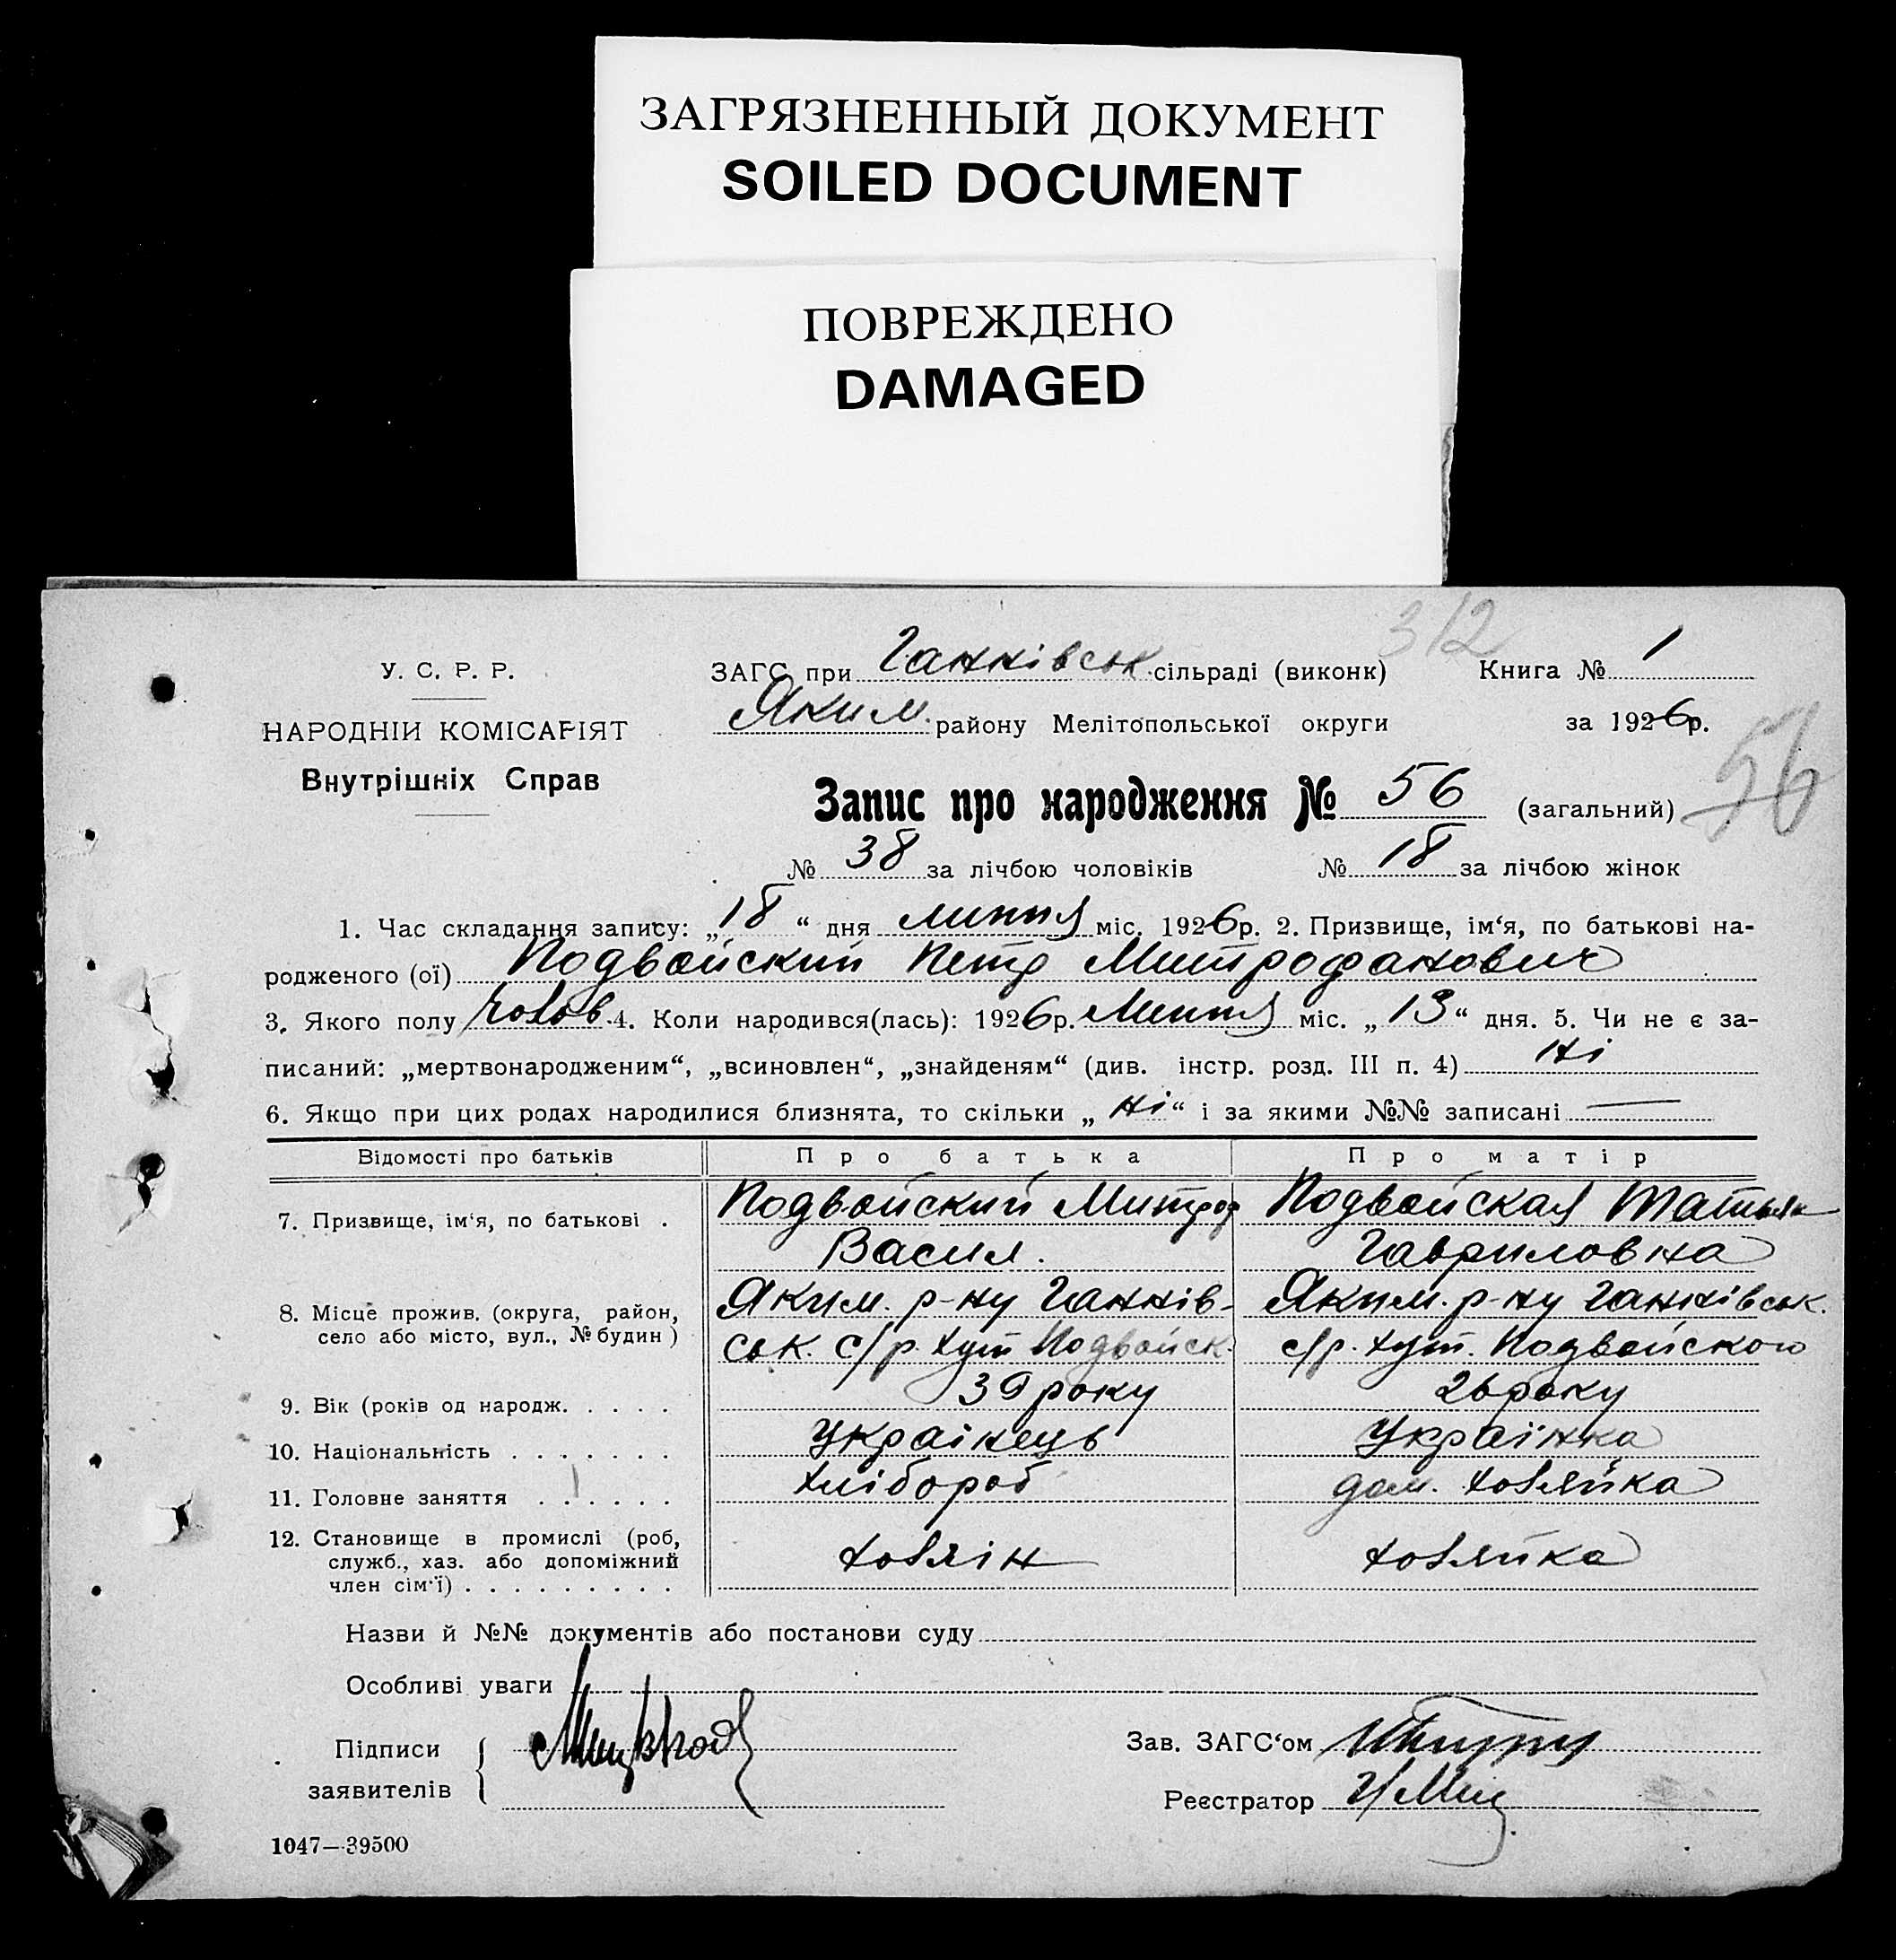 ЗАГРЯЗНЕННЫЙ ДОКУМЕНТ
SOILED DOCUMENT
ПОВРЕЖДЕНО
DAMAGED
312
У. С. Р. Р.
НАРОДНІЙ КОМІСАРІЯТ
Внутрішніх Справ
ЗАГС при Ганнівськ. сільраді (виконк) Книга № 1
Яким. району Мелітопольської округи за 1926р.
56
Запис про народження № 56 (загальний)
№ 38 за лічбою чоловіків № 18 за лічбою жінок
1. Час складання запису: „18“ дня липня міс. 1926р. 2. Призвище, ім‘я, по батькові на-
родженого (ої) Подвойский Петр Митрофанович
3. Якого полу чолов. 4. Коли народився(лась): 1926р. Липня міс. „13“ дня. 5. Чи не є за-
писаний: „мертвонародженим“, „всиновлен“, „знайденям“ (див. інстр. розд. III п. 4) Ні
6. Якщо при цих родах народилися близнята, то скільки „Ні“ і за якими №№ записані —
Відомості про батьків Про батька Про матір
7. Призвище, ім‘я, по батькові . Подвойский Митроф Подвойская Татьян
Васил. Гавриловна
8. Місце прожив. (округа, район, Яким. р-ну Ганнів- Яким. р-ну Ганнівськ.
село або місто, вул., № будин) ськ. с/р. хут Подвойск. с/р. хут. Подвойского
9. Вік (років од народж. . . . . 39 року 26 року
10. Національність . . . . . . . Українець Українка
11. Головне заняття . . . . . . хлібороб дом. хозяйка
12. Становище в промислі (роб,
служб., хаз. або допоміжний хозяін хозяйка
член сім‘ї) . . . . . . . . .
Назви й №№ документів або постанови суду
Особливі уваги
Підписи
заявителів
Зав. ЗАГС‘ом
Реєстратор
1047—39500